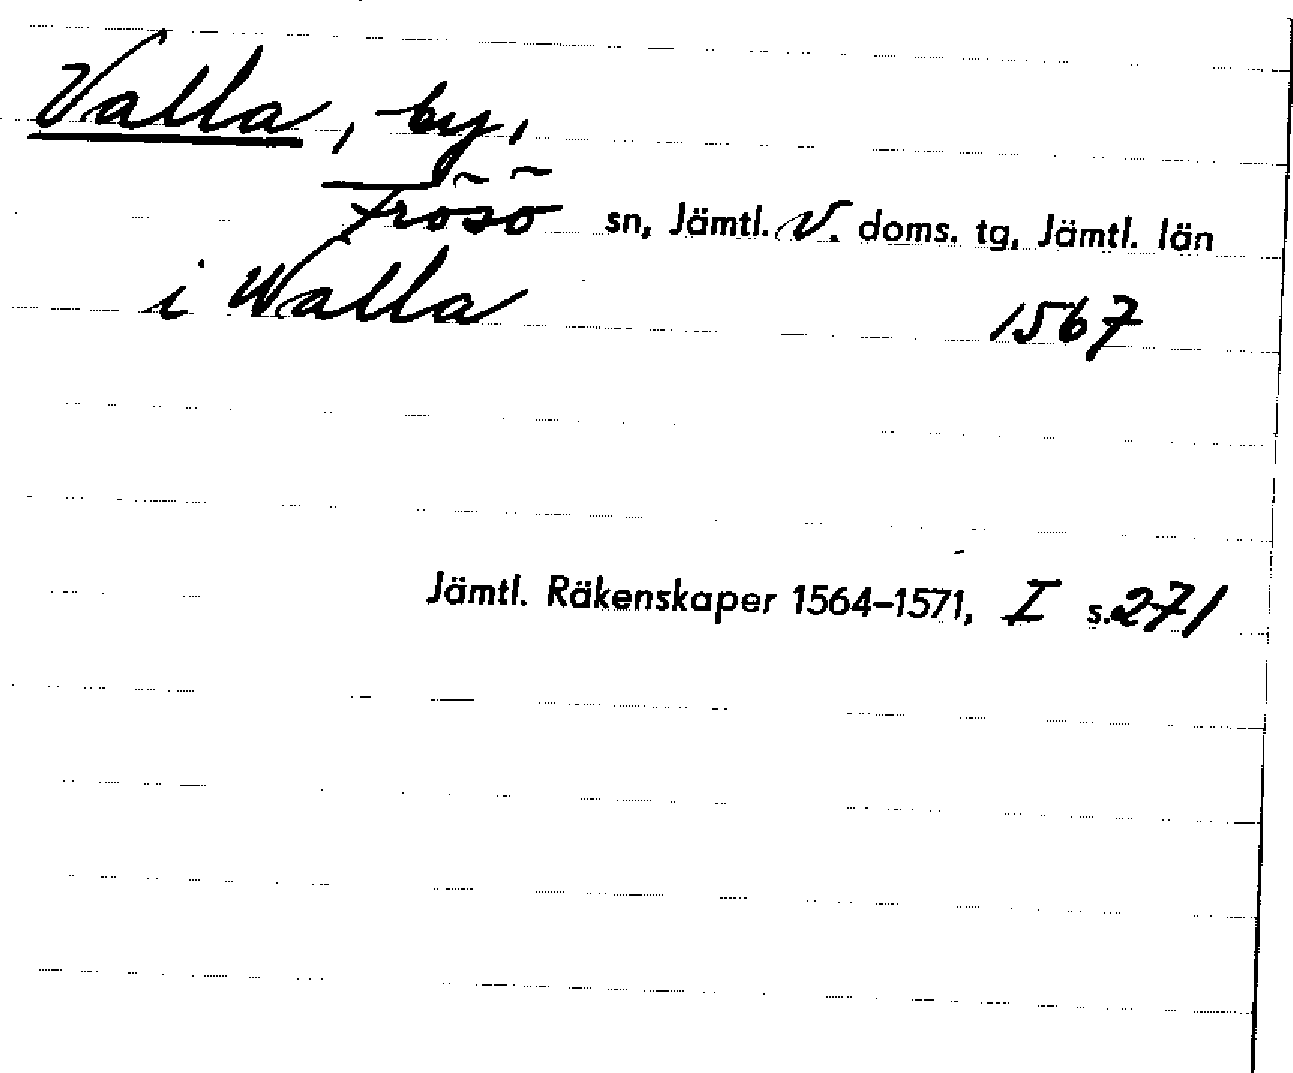 Valla, by,
Frösö sn, Jämtl. V. doms. tg, Jämtl. län
i Walla 1567
Jämtl. Räkenskaper 1564-1571, I s. 271